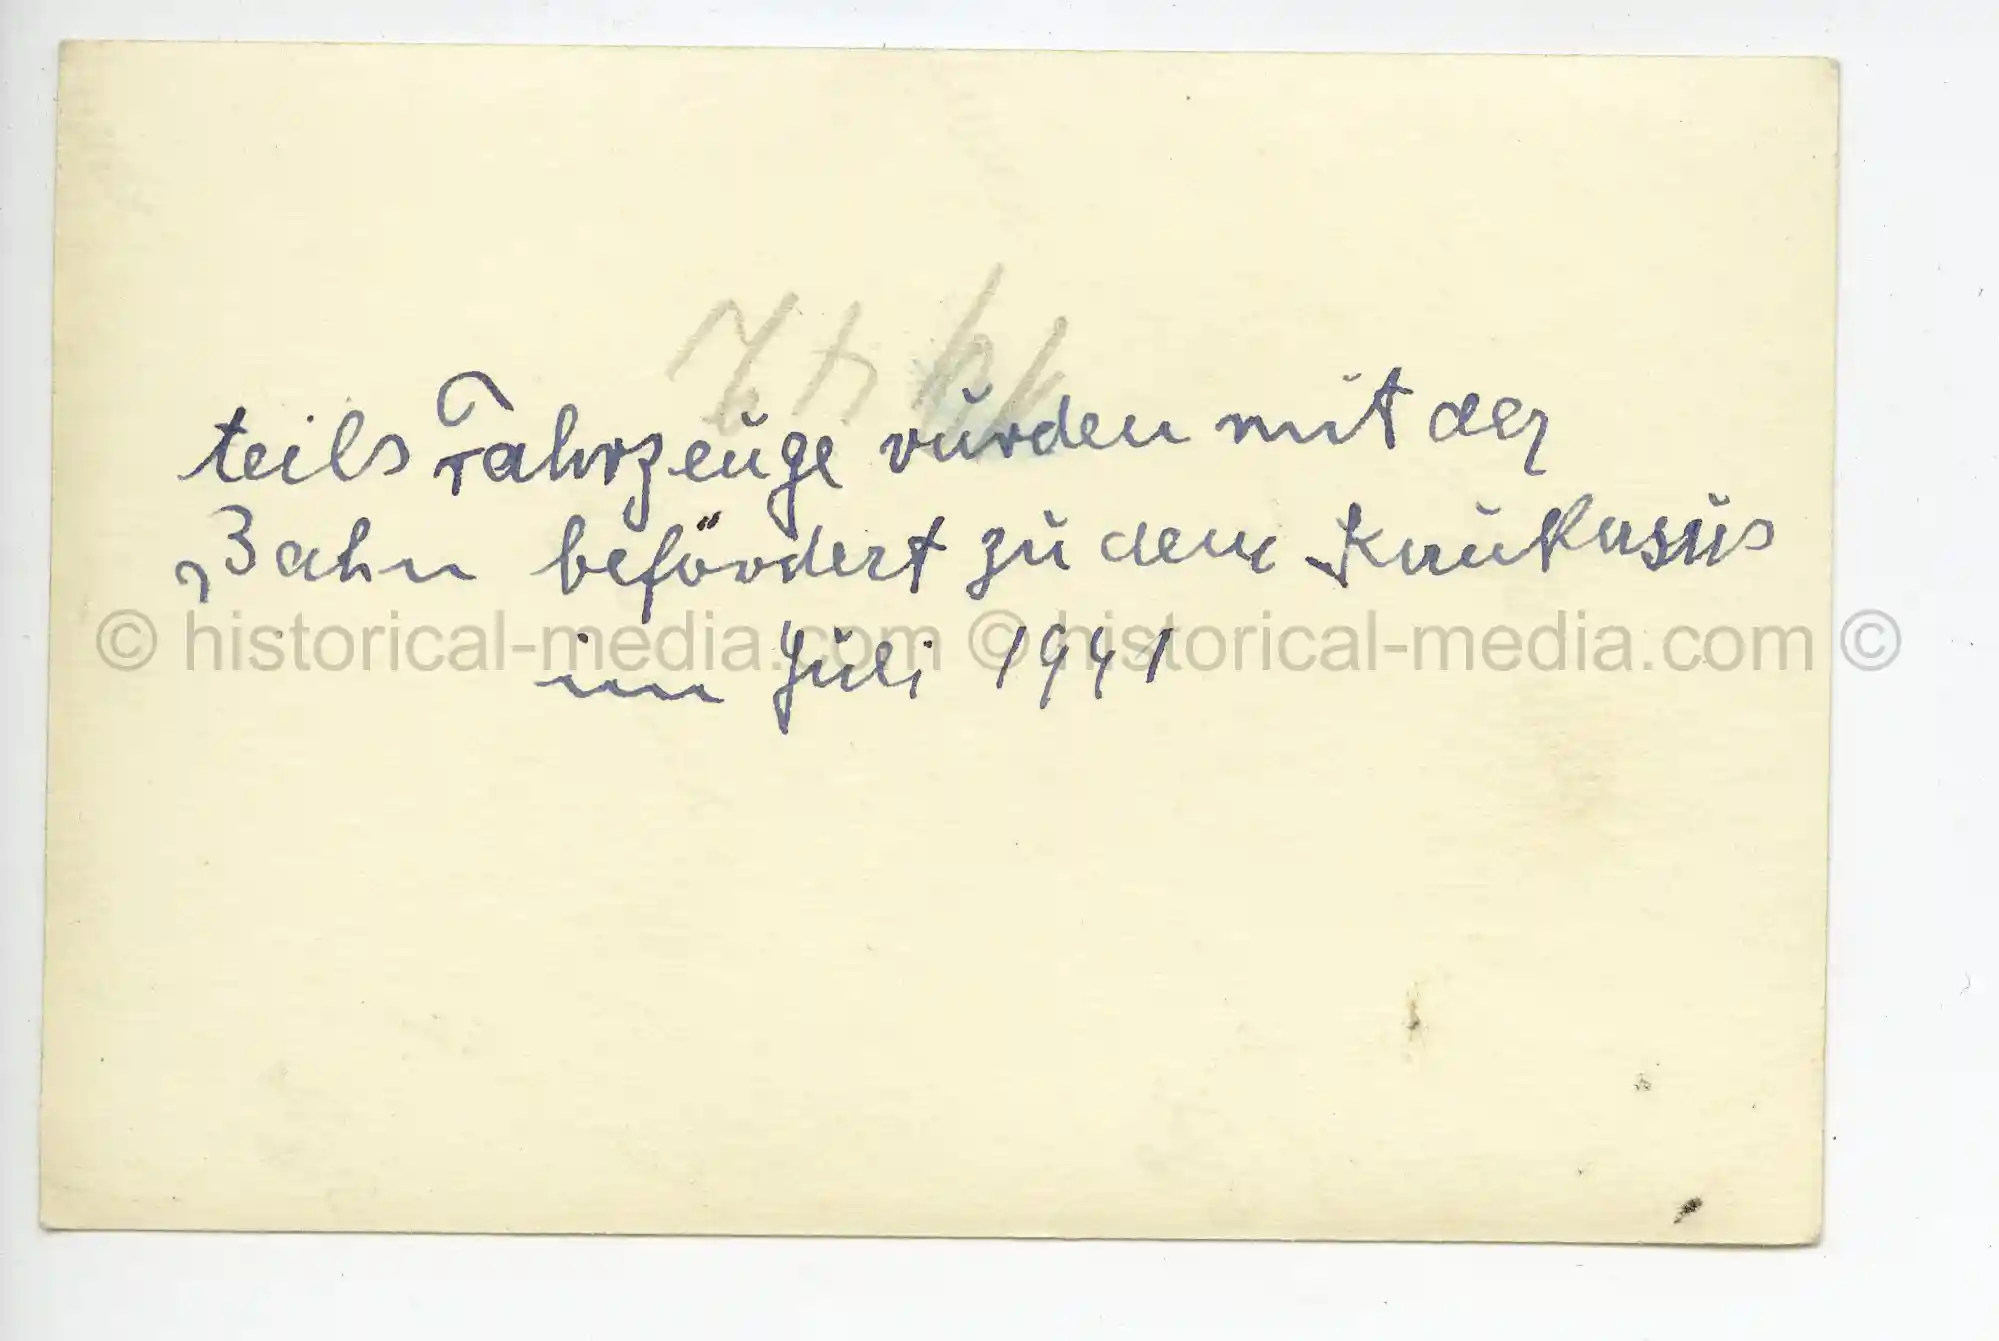 teils Fahrzeuge wurden mit der
Bahn befördert zu dem Kaukasus
© historical-media.com © historical-media.com ©
im Juli 1941